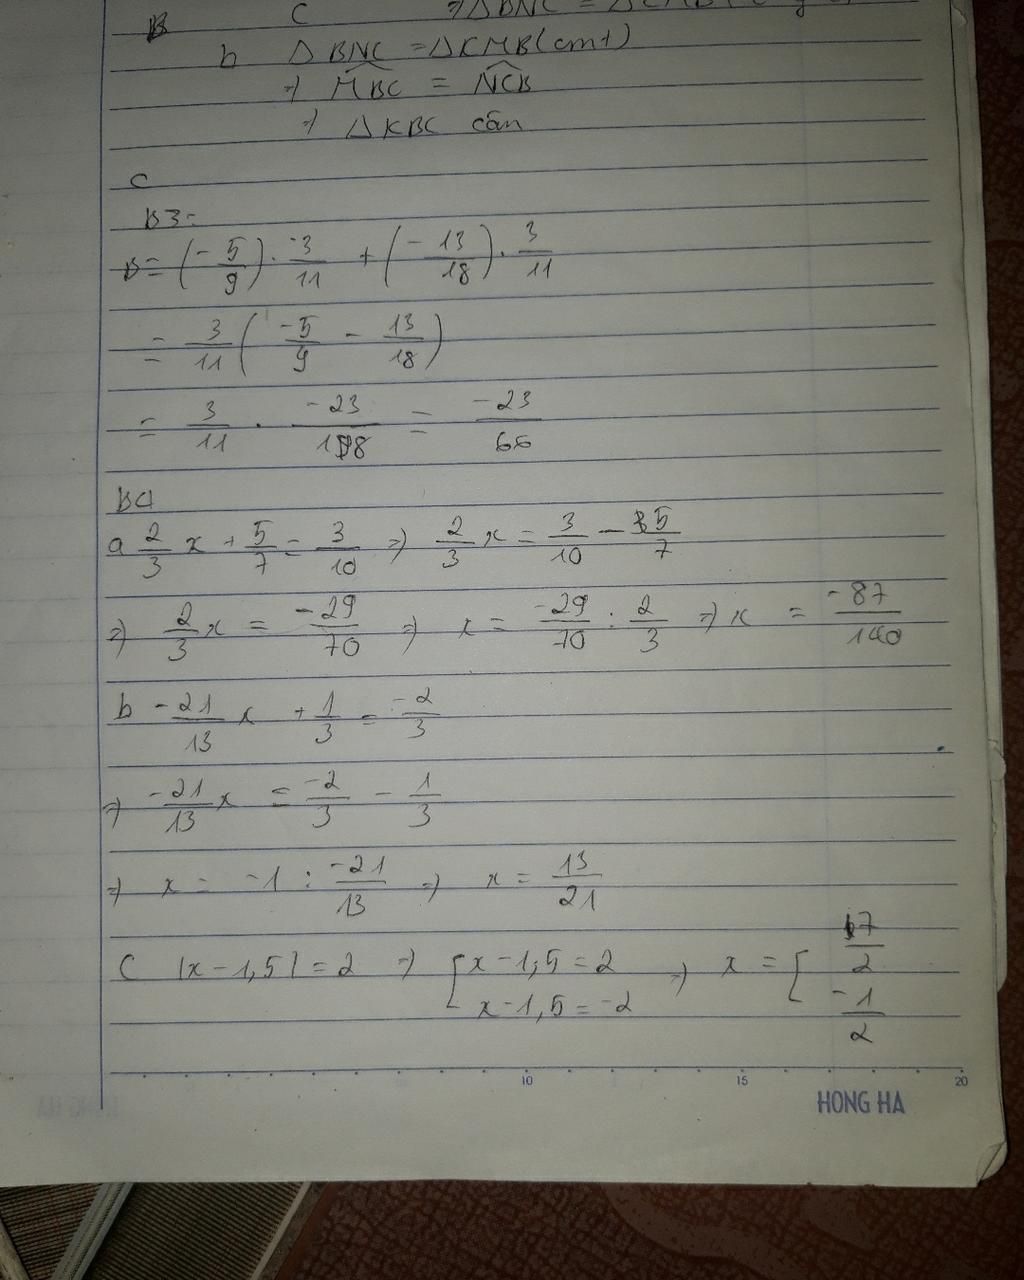 B C ⇒ΔBNC = ΔCMB
b ΔBNC = ΔCMB(cmt)
⇒ \widehat{MBC} = \widehat{NCB}
⇒ ΔKBC cân
C
B3:
B = (-5/9) . 3/11 + (-13/18) . 3/11
= 3/11 (-5/9 - 13/18)
= 3/11 . -23/18 = -23/66
B4
a 2/3 x + 5/7 = 3/10 ⇒ 2/3 x = 3/10 - 5/7
⇒ 2/3 x = -29/70 ⇒ x = -29/70 : 2/3 ⇒ x = -87/140
b -21/13 x + 1/3 = -2/3
⇒ -21/13 x = -2/3 - 1/3
⇒ x = -1 : -21/13 ⇒ x = 13/21
C |x-1,5| = 2 ⇒ [x-1,5 = 2 ⇒ x = [7/2
x-1,5 = -2 -1/2
10 15 20
HONG HA